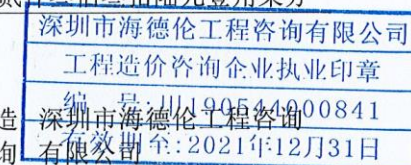 深圳市海德伦工程咨询有限公司
工程造价咨询企业执业印章
编 号:川190544000841
有效期至:2021年12月31日
造 深圳市海德伦工程咨询
询 有限公司